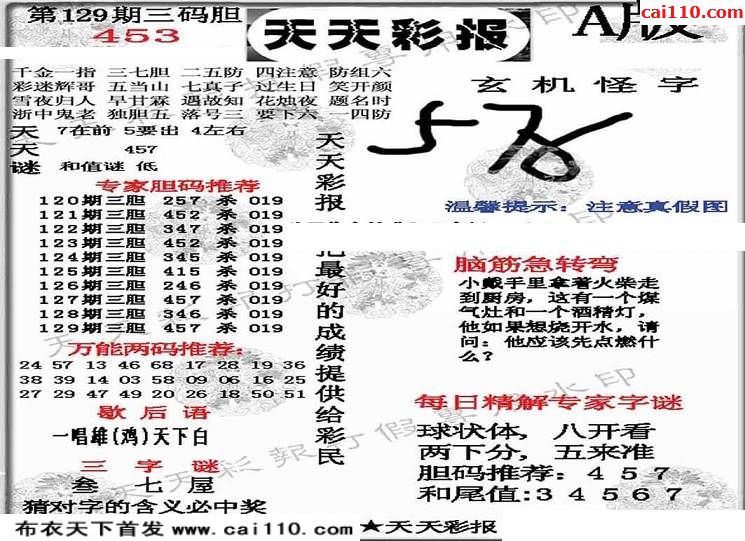 第129期三码胆
453
天天彩报
A版
cai110.com
千金一指 三七胆 二五防 四注意 防组六
彩迷辉哥 五当山 七真子 过生日 笑开颜
雪夜归人 早甘霖 遇故知 花烛夜 题名时
浙中鬼老 独胆五 落号三 要下六 一四防
天 7在前 5要出 4左右
天 457
谜 和值谜 低
专家胆码推荐
120期三胆 257 杀 019
121期三胆 452 杀 019
122期三胆 347 杀 019
123期三胆 452 杀 019
124期三胆 345 杀 019
125期三胆 415 杀 019
126期三胆 246 杀 019
127期三胆 457 杀 019
128期三胆 346 杀 019
129期三胆 457 杀 019
万能两码推荐:
24 57 13 46 68 17 28 19 36
38 39 14 03 58 09 06 16 25
27 29 47 49 20 26 18 50 51
歇后语
一唱雄(鸡)天下白
三字谜
叁七屋
猜对字的含义必中奖
天天彩报
把最好的成绩提供给彩民
玄机怪字
576
温馨提示:注意真假图
脑筋急转弯
小戴手里拿着火柴走
到厨房,这有一个煤
气灶和一个酒精灯,
他如果想烧开水,请
问:他应该先点燃什
么?
每日精解专家字谜
球状体,八开看
两下分,五来准
胆码推荐:457
和尾值:34567
布衣天下首发 www.cai110.com ★天天彩报
天天彩報打假專用水印